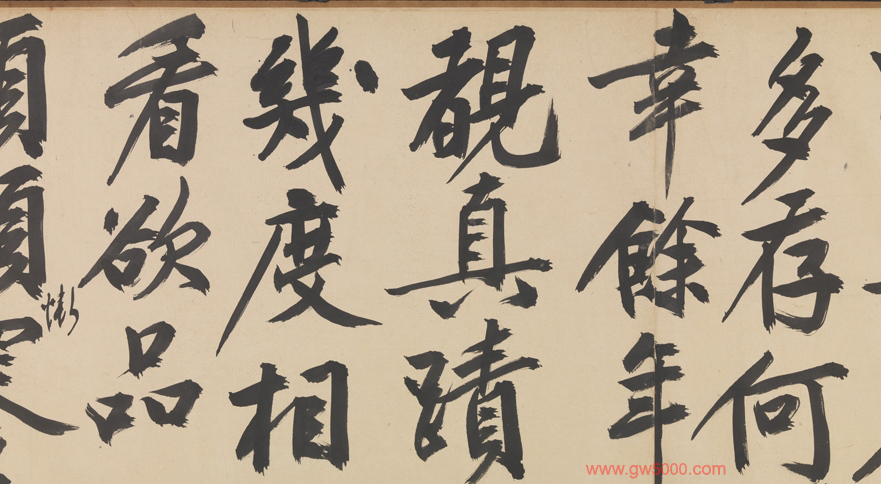 多存何
幸餘年
覩真蹟
幾度相
看欲品
www.gw5000.com